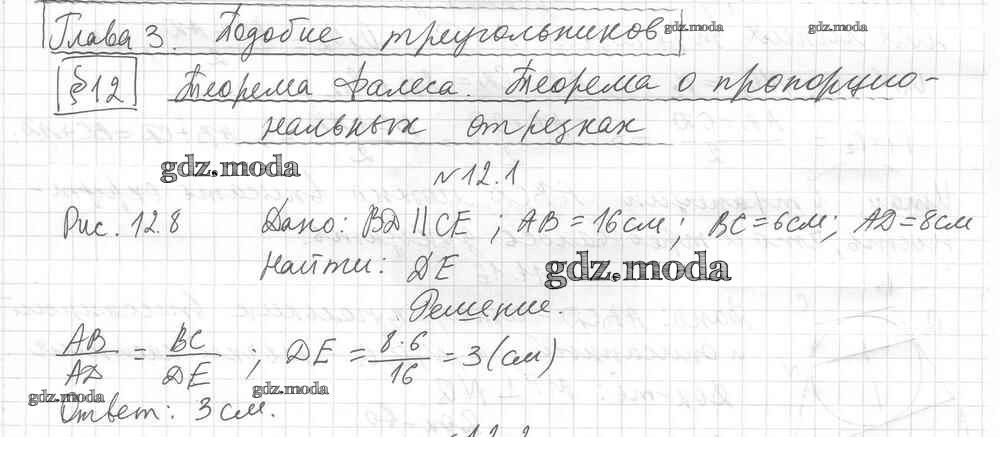 Глава 3. Подобие треугольников
gdz.moda gdz.moda
§12 Теорема Фалеса. Теорема о пропорцио-
нальных отрезках
gdz.moda
№12.1
Рис. 12.8 Дано: BD || CE ; AB = 16см; BC = 6см; AD = 8см
Найти: DE
gdz.moda
Решение.
AB/AD = BC/DE ; DE = 8·6/16 = 3 (см)
gdz.moda gdz.moda
Ответ: 3 см.